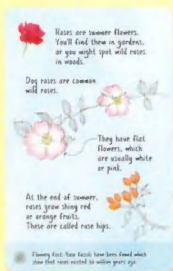 Roses are summer flowers.
You'll find them in gardens,
or you might spot wild roses
in woods.
Dog roses are common
wild roses.
They have flat
flowers, which
are usually white
or pink.
At the end of summer,
roses grow shiny red
or orange fruits.
These are called rose hips.
Flowery fact: Rose fossils have been found which
show that roses existed 35 million years ago.